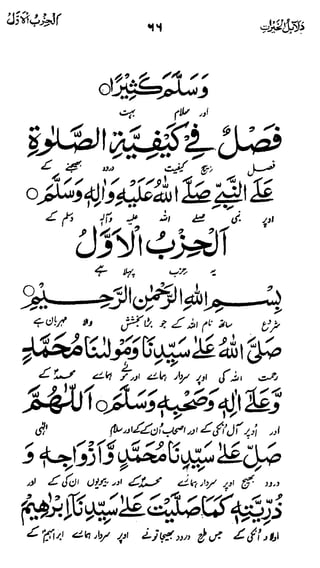 دَلَائِلُ الْخَيْرَاتِ ٦٦ اَلْحِزْبُ الْاَوَّلُ
وَسَلَّمَ كَثِيْرًا○
اور سلام بہت
فَصْلٌ فِيْ كَيْفِيَّةِ الصَّلٰوةِ
فصل بیچ کیفیت درود بھیجنے کے
عَلَى النَّبِيِّ صَلَّى اللهُ عَلَيْهِ وَاٰلِهٖ وَسَلَّمَ○
اوپر نبی صلے اللہ علیہ وآلہٖ وسلم کے
اَلْحِزْبُ الْاَوَّلُ
یہ حزب پہلا ہے
بِسْمِ اللهِ الرَّحْمٰنِ الرَّحِيْمِ○
شروع ساتھ نام اللہ کے جو بڑا بخشش والا مہربان ہے
صَلَّى اللهُ عَلٰى سَيِّدِنَا وَمَوْلٰىنَا مُحَمَّدٍ
رحمت اللہ کی اوپر سردار ہمارے اور ہمارے محمدؐ کے
وَّعَلٰى اٰلِهٖ وَصَحْبِهٖ وَسَلَّمَ○ اَللّٰهُمَّ
اور اوپر آل اُنکی کے اور اصحاب اُن کے کے اور سلام الٰہی
صَلِّ عَلٰى سَيِّدِنَا مُحَمَّدٍ وَّاَزْوَاجِهٖ وَ
درود بھیج اوپر سردار ہمارے محمدؐ کے اور بیبیوں ان کی کے اور
ذُرِّيَّتِهٖ كَمَا صَلَّيْتَ عَلٰى سَيِّدِنَا اِبْرٰهِيْمَ
اولاد اُنکی کے جس طرح درود بھیجا تونے اوپر سردار ہمارے ابراہیمؑ کے